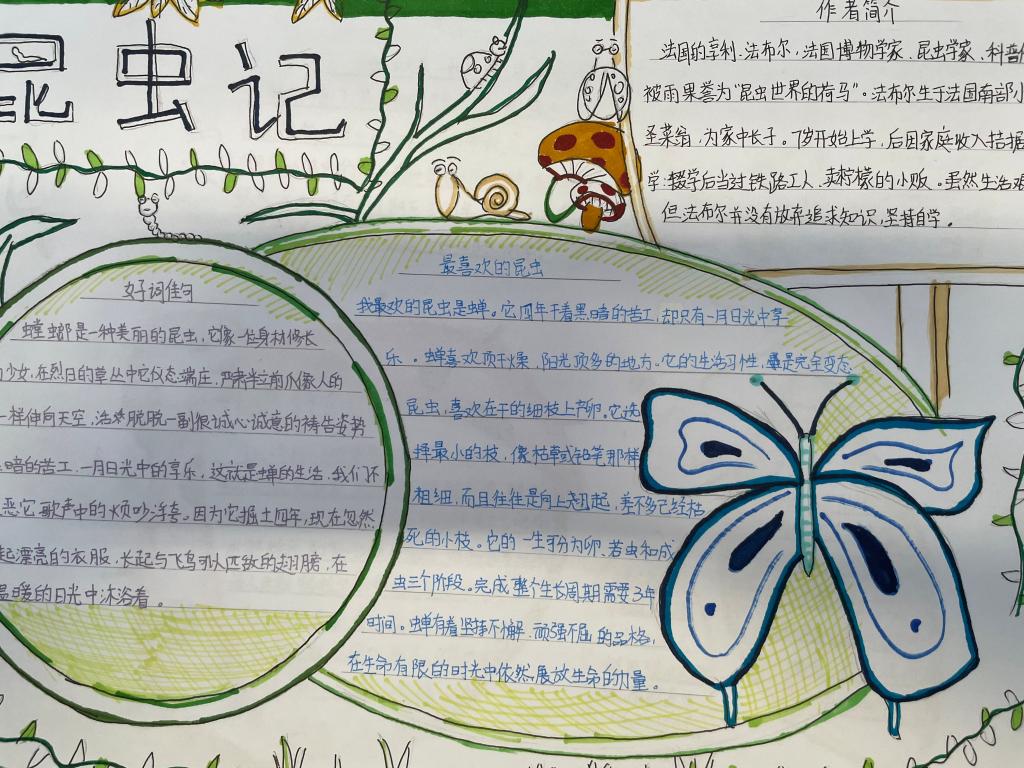 昆虫记
作者简介
法国的亨利·法布尔，法国博物学家、昆虫学家、科普
被雨果誉为"昆虫世界的荷马"。法布尔生于法国南部
圣莱翁，为家中长子。7岁开始上学，后因家庭收入拮据
学：辍学后当过铁路工人、卖柠檬的小贩。虽然生活艰
但法布尔并没有放弃追求知识，坚持自学。
好词佳句
螳螂是一种美丽的昆虫，它像一位身材修长
少女，在烈日的草丛中它仪态端庄，严肃半立前爪像人的
一样伸向天空，活脱脱一副很诚心诚意的祷告姿势
暗的苦工，一月日光中的享乐，这就是蝉的生活，我们不
恶它歌声中的烦吵浮夸。因为它掘土四年，现在忽然
起漂亮的衣服，长起与飞鸟可以匹敌的翅膀，在
温暖的日光中沐浴着。
最喜欢的昆虫
我最欢的昆虫是蝉。它四年干着黑暗的苦工，却只有一月日光中享
乐。蝉喜欢顶干燥，阳光顶多的地方。它的生活习性，是完全变态
昆虫，喜欢在干的细枝上产卵。它选
择最小的枝，像枯草或铅笔那样
粗细，而且往往是向上翘起，差不多已经枯
死的小枝。它的一生分为卵、若虫和成
虫三个阶段。完成整个生长周期需要3年
时间。蝉有着坚持不懈、顽强不屈的品格，
在生命有限的时光中依然展放生命的力量。